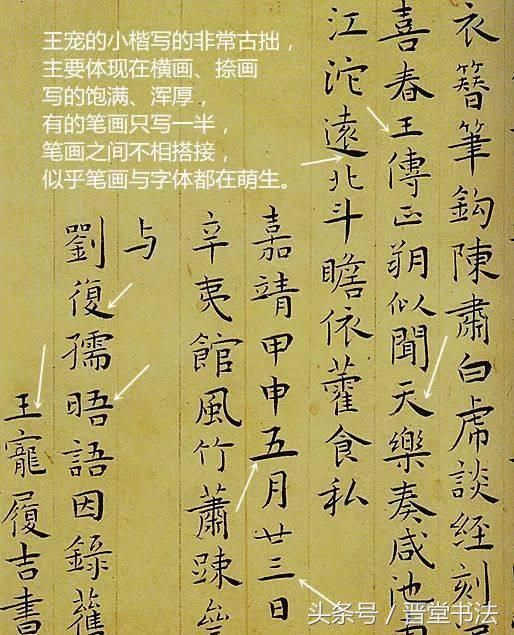 王宠的小楷写的非常古拙，
主要体现在横画、捺画
写的饱满、浑厚，
有的笔画只写一半，
笔画之间不相搭接，
似乎笔画与字体都在萌生。
衣簪筆鈎陳肅白虎談經刻
喜春王傳正朔似聞天樂奏咸池
江沱遠北斗瞻依藿食私
嘉靖甲申五月廿三日
辛夷館風竹蕭踈
与
劉復孺晤語因錄舊
王寵履吉書
头条号／晋堂书法